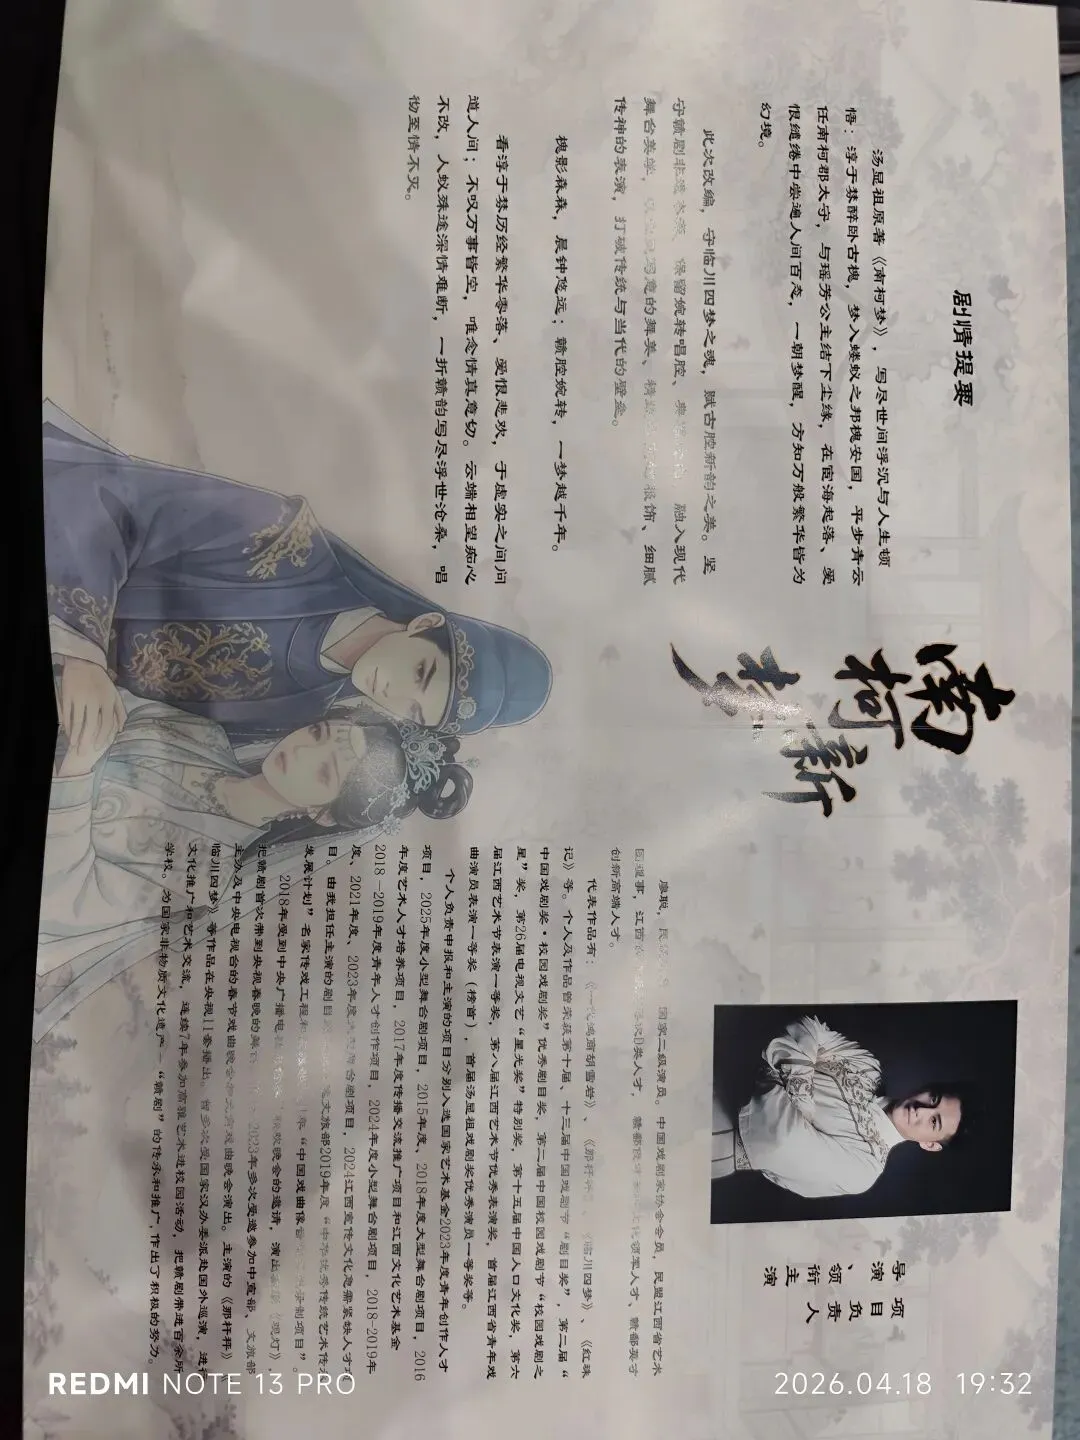 剧情提要
汤显祖原著《南柯梦》，写尽世间浮沉与人生顿
悟：淳于棼醉卧古槐，梦入蝼蚁之邦槐安国，平步青云
任南柯郡太守，与瑶芳公主结下尘缘，在宦海起落、爱
恨缱绻中尝遍人间百态，一朝梦醒，方知万般繁华皆为
幻境。
此次改编，守临川四梦之魂，赋古腔新韵之美。坚
守赣剧非遗本源，保留婉转唱腔、融入现代
舞台美学，写意的舞美、服饰、细腻
传神的表演，打破传统与当代的壁垒。
槐影森森，晨钟悠远；赣腔婉转，一梦越千年。
看淳于棼历经繁华零落、爱恨悲欢，于虚实之间问
道人间；不叹万事皆空，唯念情真意切。云端相望痴心
不改，人蚁殊途深情难断，一折赣韵写尽浮世沧桑，唱
彻至情不灭。
南柯新梦
项目负责人
导演、领衔主演
廖聪，国家二级演员。中国戏剧家协会会员，民盟江西省艺术
团理事，江西 类人才，赣鄱俊才 领军人才、赣鄱英才
创新高端人才。
代表作品有：《一代鸿商胡雪岩》、《那杆秤》、《临川四梦》、《红珠
记》等。个人及作品曾荣获第十届、十三届中国戏剧节“剧目奖”，第二届“
中国戏剧奖·校园戏剧奖”优秀剧目奖，第二届中国校园戏剧节“校园戏剧之
星”奖，第26届电视文艺“星光奖”特别奖，第十五届中国人口文化奖，第六
届江西艺术节表演一等奖，第八届江西艺术节优秀表演奖，首届江西省青年戏
曲演员表演一等奖（榜首），首届汤显祖戏剧奖优秀演员一等奖等。
个人负责申报和主演的项目分别入选国家艺术基金2023年度青年创作人才
项目，2025年度小型舞台剧项目，2015年度、2018年度大型舞台剧项目，2016
年度艺术人才培养项目，2017年度传播交流推广项目和江西文化艺术基金
2018－2019年度青年人才创作项目，2024年度小型舞台剧项目，2018-2019年
度、2021年度、2023年度大型舞台剧项目，2024江西宣传文化急需紧缺人才项
目。由我担任主演的剧目 文旅部2019年度“中华优秀传统艺术传承
发展计划”名家传戏工程和 年“中国戏曲像音像录制项目”。
2018年受到中央广播电视 晚会的邀请，演出 《观灯》，
把赣剧首次带到央视春晚的舞台 2023年多次受邀参加中宣部、文旅部
主办及中央电视台的春节戏曲晚会 戏曲晚会演出。主演的《那杆秤》《
临川四梦》等作品在央视11套播出。曾多次受国家汉办委派赴国外巡演，进行
文化推广和艺术交流，连续7年参加高雅艺术进校园活动，把赣剧带进百余所
学校。为国家非物质文化遗产－“赣剧”的传承和推广，作出了积极的努力。
REDMI NOTE 13 PRO
2026.04.18 19:32